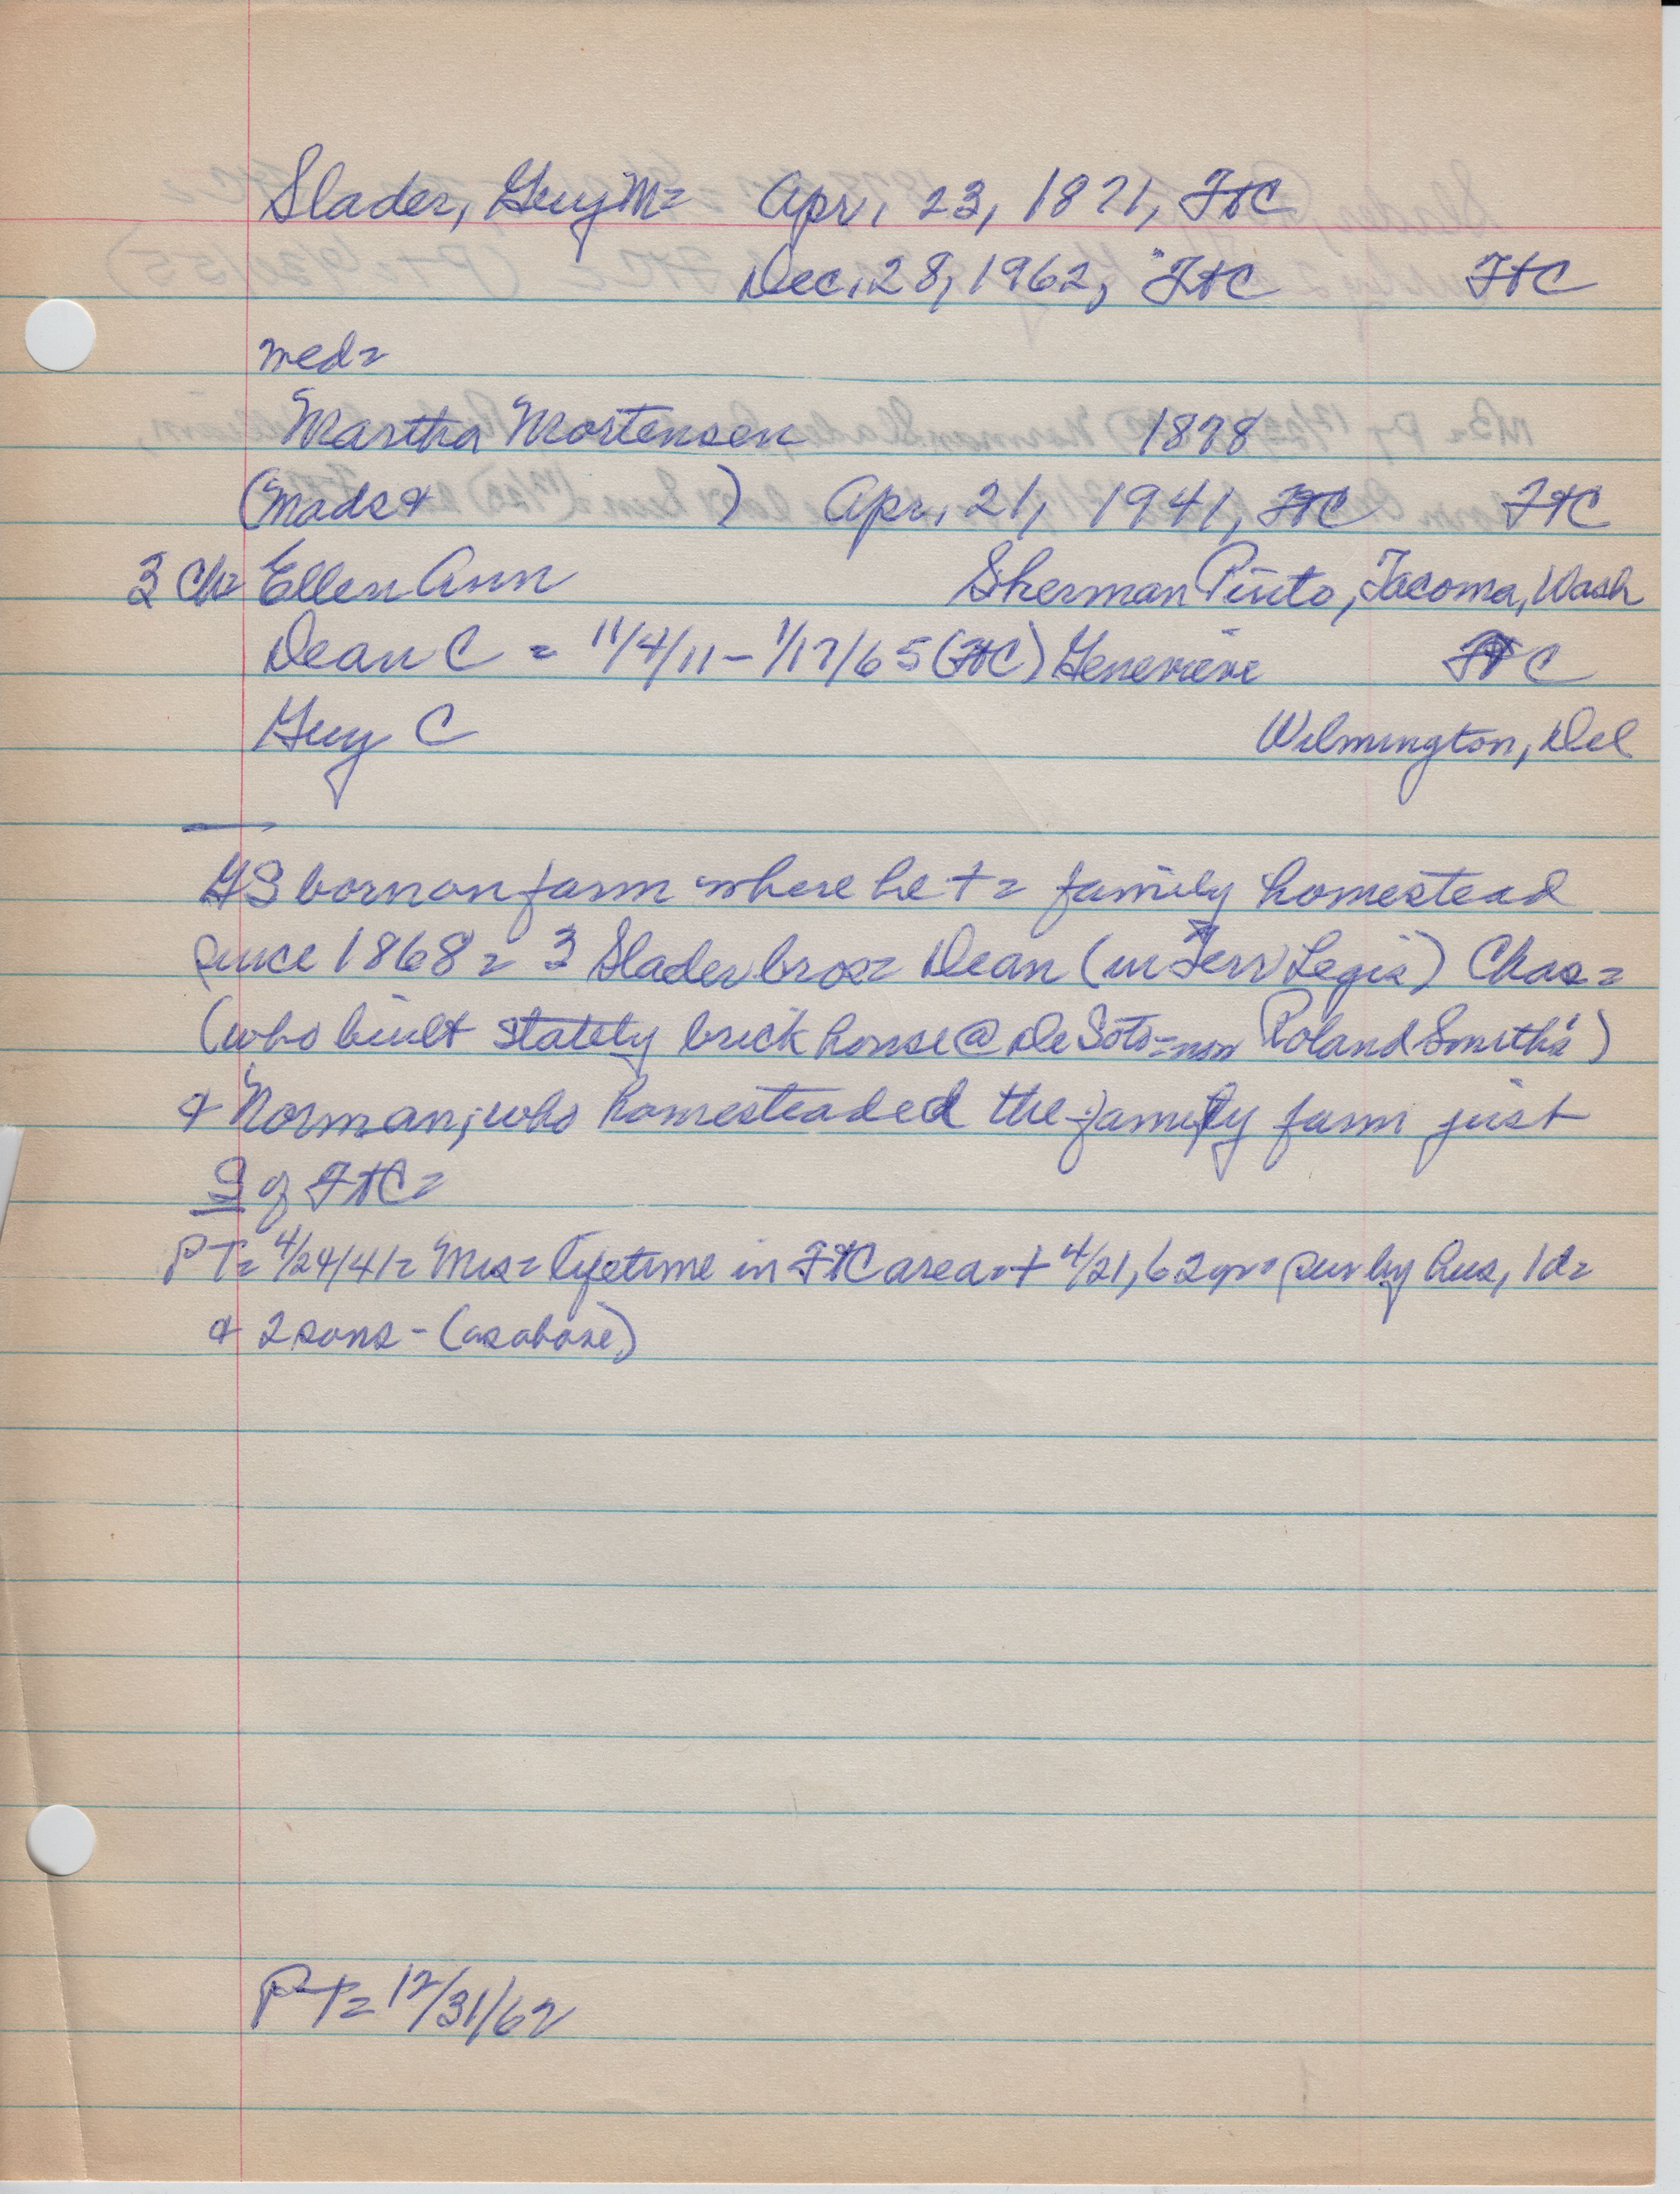 Slader, Guy M= Apr, 23, 1871, FtC
Dec. 28, 1962, FtC FtC
med=
Martha Mortensen 1878
(Mads & ) Apr, 21, 1941, FtC FtC
3 ch= Ellen Ann Sherman Pinto, Tacoma, Wash
Dean C = 11/4/11 - 1/17/65 (FtC) Genevieve FtC
Guy C Wilmington, Del
GS born on farm where he + = family homestead
since 1868 = 3 Slader bros= Dean (in Terr Legis) Chas=
(who built stately brick house @ DeSoto = now Roland Smith's)
& Norman, who homesteaded the family farm just
S of FtC=
PT= 4/24/41= Mrs= lifetime in FtC area= + 4/21, 62 yr= sur by hus, 1d=
& 2 sons - (as above)
PT= 12/31/62